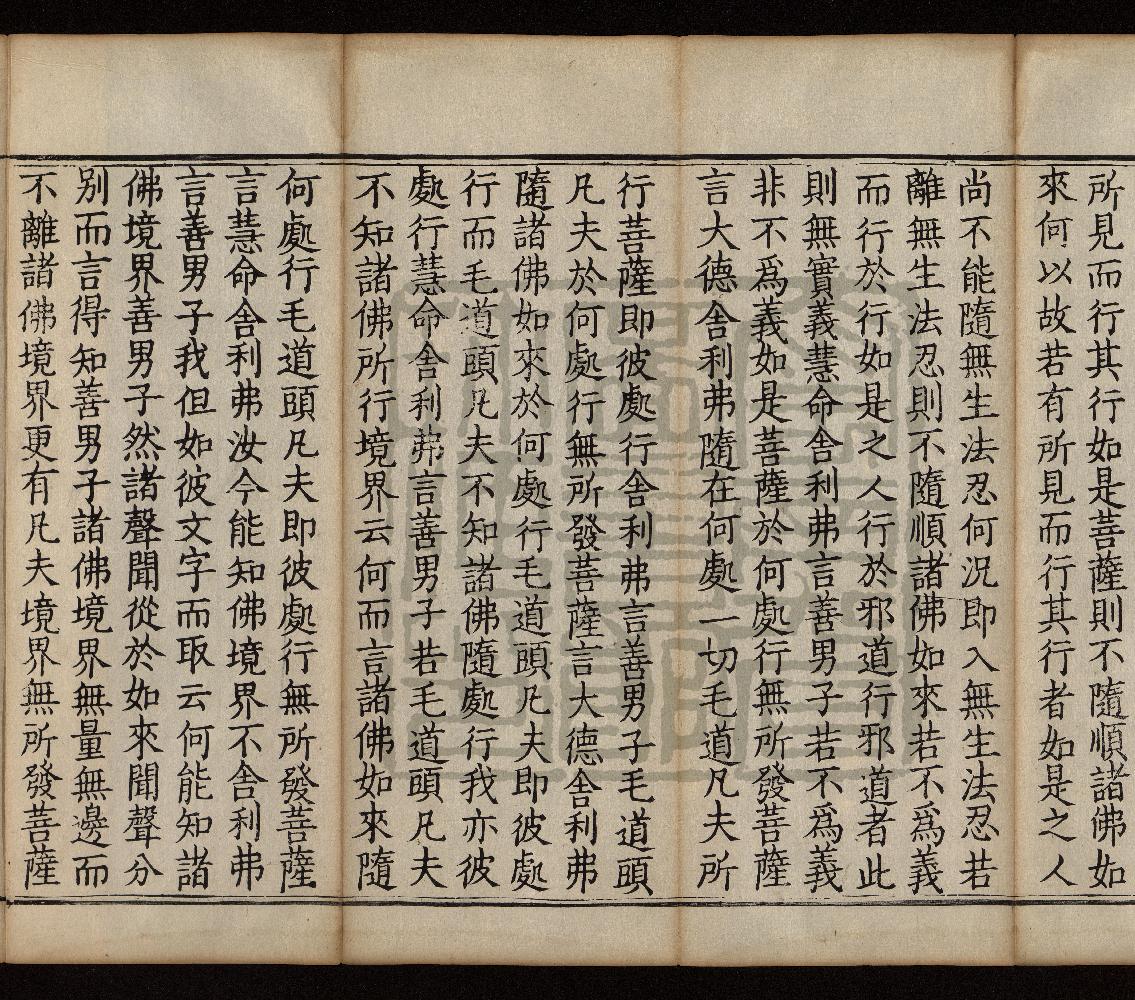 所見而行其行如是菩薩則不隨順諸佛如
來何以故若有所見而行其行者如是之人
尚不能隨無生法忍何況即入無生法忍若
離無生法忍則不隨順諸佛如來若不為義
而行於行如是之人行於邪道行邪道者此
則無實義慧命舍利弗言善男子若不為義
非不為義如是菩薩於何處行無所發菩薩
言大德舍利弗隨在何處一切毛道凡夫所
行菩薩即彼處行舍利弗言善男子毛道頭
凡夫於何處行無所發菩薩言大德舍利弗
隨諸佛如來於何處行毛道頭凡夫即彼處
行而毛道頭凡夫不知諸佛隨處行我亦彼
處行慧命舍利弗言善男子若毛道頭凡夫
不知諸佛所行境界云何而言諸佛如來隨
何處行毛道頭凡夫即彼處行無所發菩薩
言慧命舍利弗汝今能知佛境界不舍利弗
言善男子我但如彼文字而取云何能知諸
佛境界善男子然諸聲聞從於如來聞聲分
別而言得知善男子諸佛境界無量無邊而
不離諸佛境界更有凡夫境界無所發菩薩